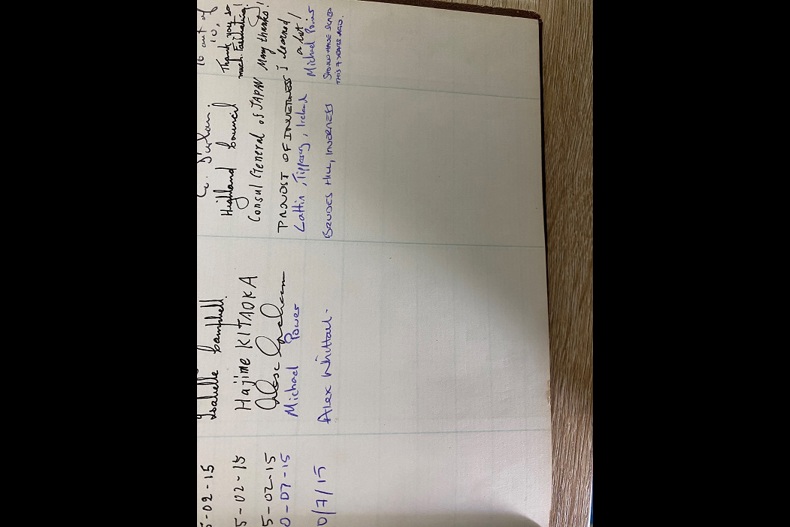 5-02-15 Isabelle Campbell 10 out of 10.
5-02-15 Hajime KITAOKA Highland Council Thank you so much. Fascinating!
5-02-15 Consul General of JAPAN Many thanks!
0-07-15 Michael Power PROVOST OF INVERNESS I learned a lot!
Lattin, Tipperary, Ireland Michael Power
0/7/15 Alex Whittall. BRUDES HILL, INVERNESS SHOULD HAVE SIGNED THIS 7 YEARS AGO.